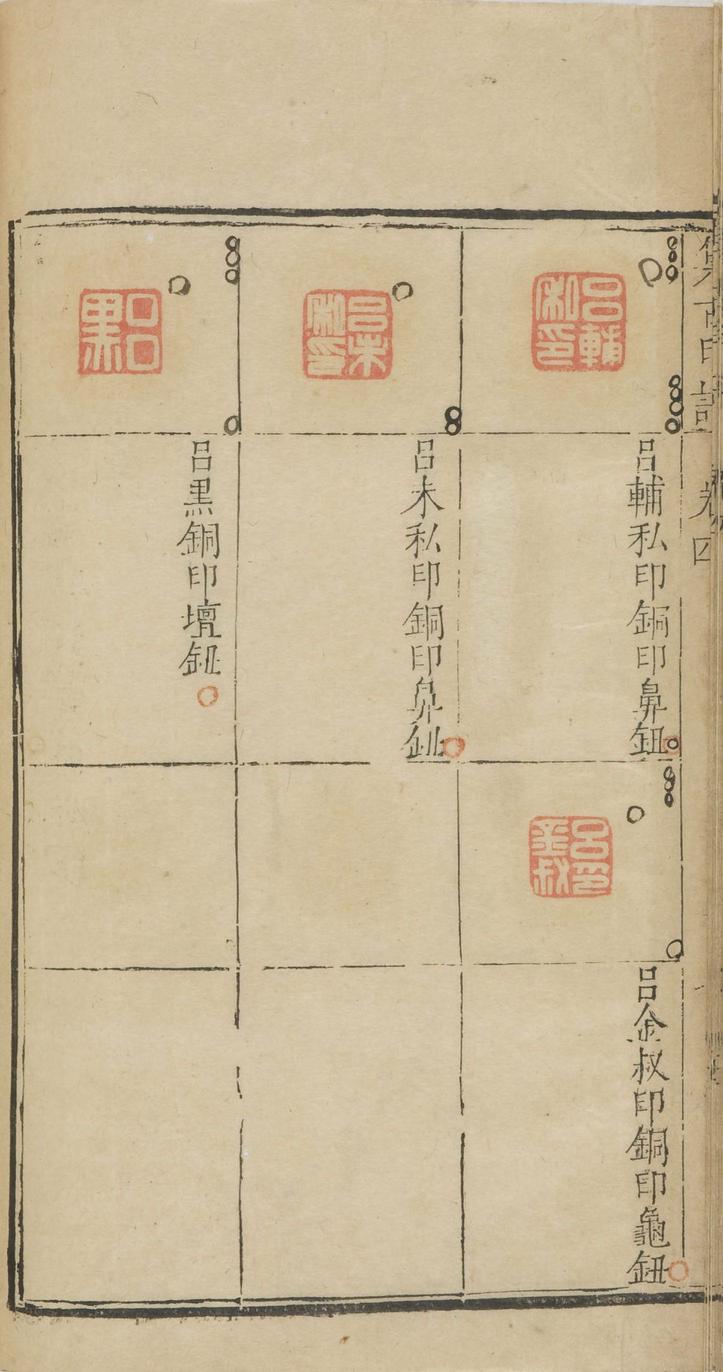 集古印譜 卷四
呂輔私印
呂輔私印銅印鼻鈕
呂未私印
呂未私印銅印鼻鈕
呂黑
呂黑銅印壇鈕
呂金叔印
呂金叔印銅印龜鈕